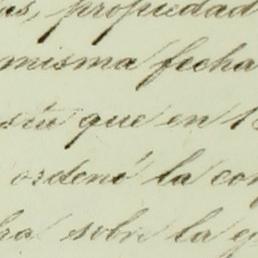 as, propiedad
misma fecha
que en 1
ordenó la con
bra sobre la ej